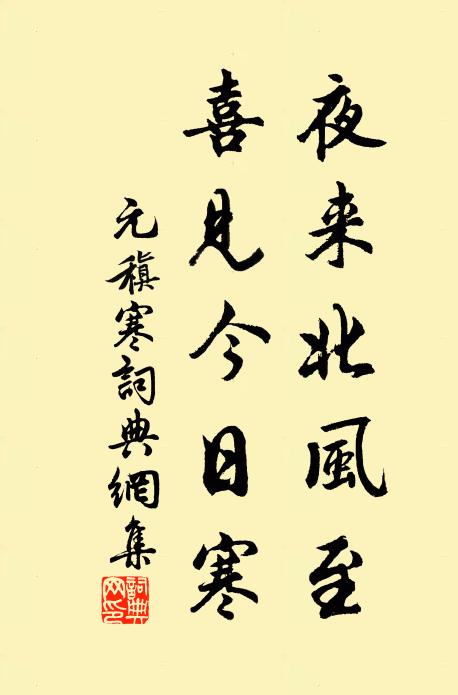 夜来北風至
喜見今日寒
元稹寒詞典網集
詞典網印